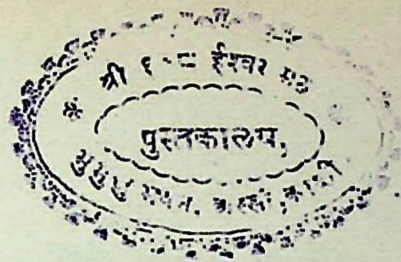 श्री १०८ ईश्वर मठ
पुस्तकालय,
मुमुक्षु भवन, काशी